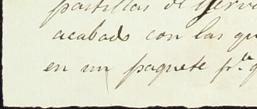 pastillas de
acabado con las qu
en un paquete pª q